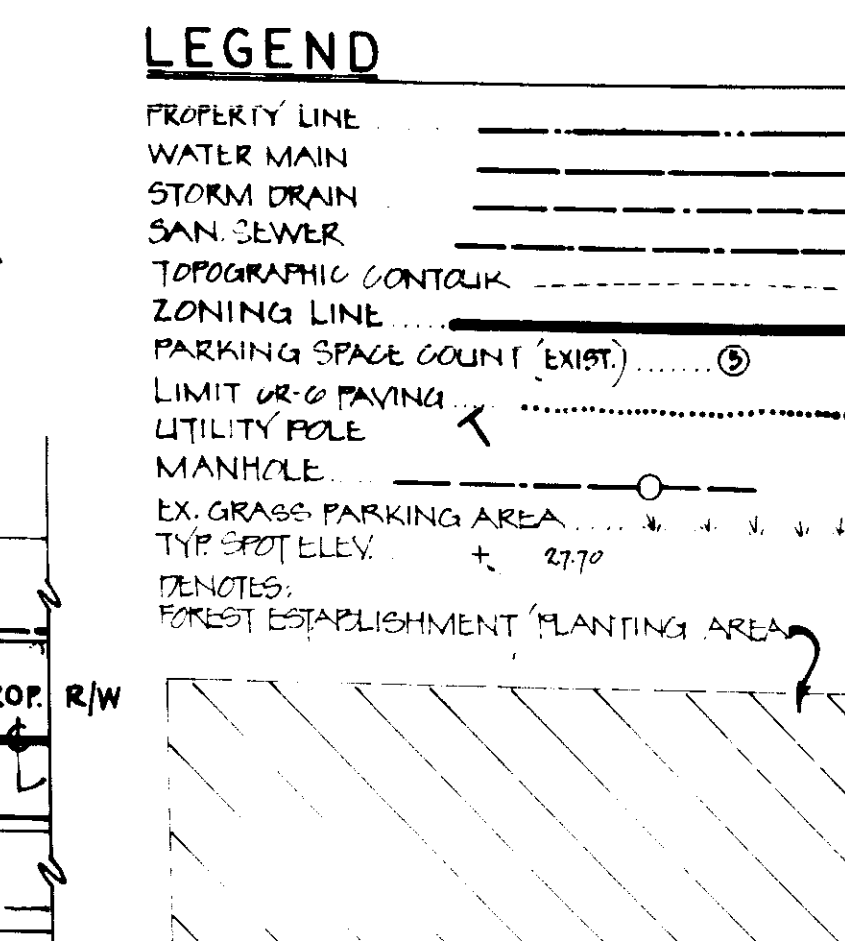 LEGEND
PROPERTY LINE
WATER MAIN
STORM DRAIN
SAN. SEWER
TOPOGRAPHIC CONTOUR
ZONING LINE
PARKING SPACE COUNT (EXIST.) 5
LIMIT CR-6 PAVING
UTILITY POLE
MANHOLE
EX. GRASS PARKING AREA
TYP. SPOT ELEV. + 27.70
DENOTES:
FOREST ESTABLISHMENT / PLANTING AREA
R/W